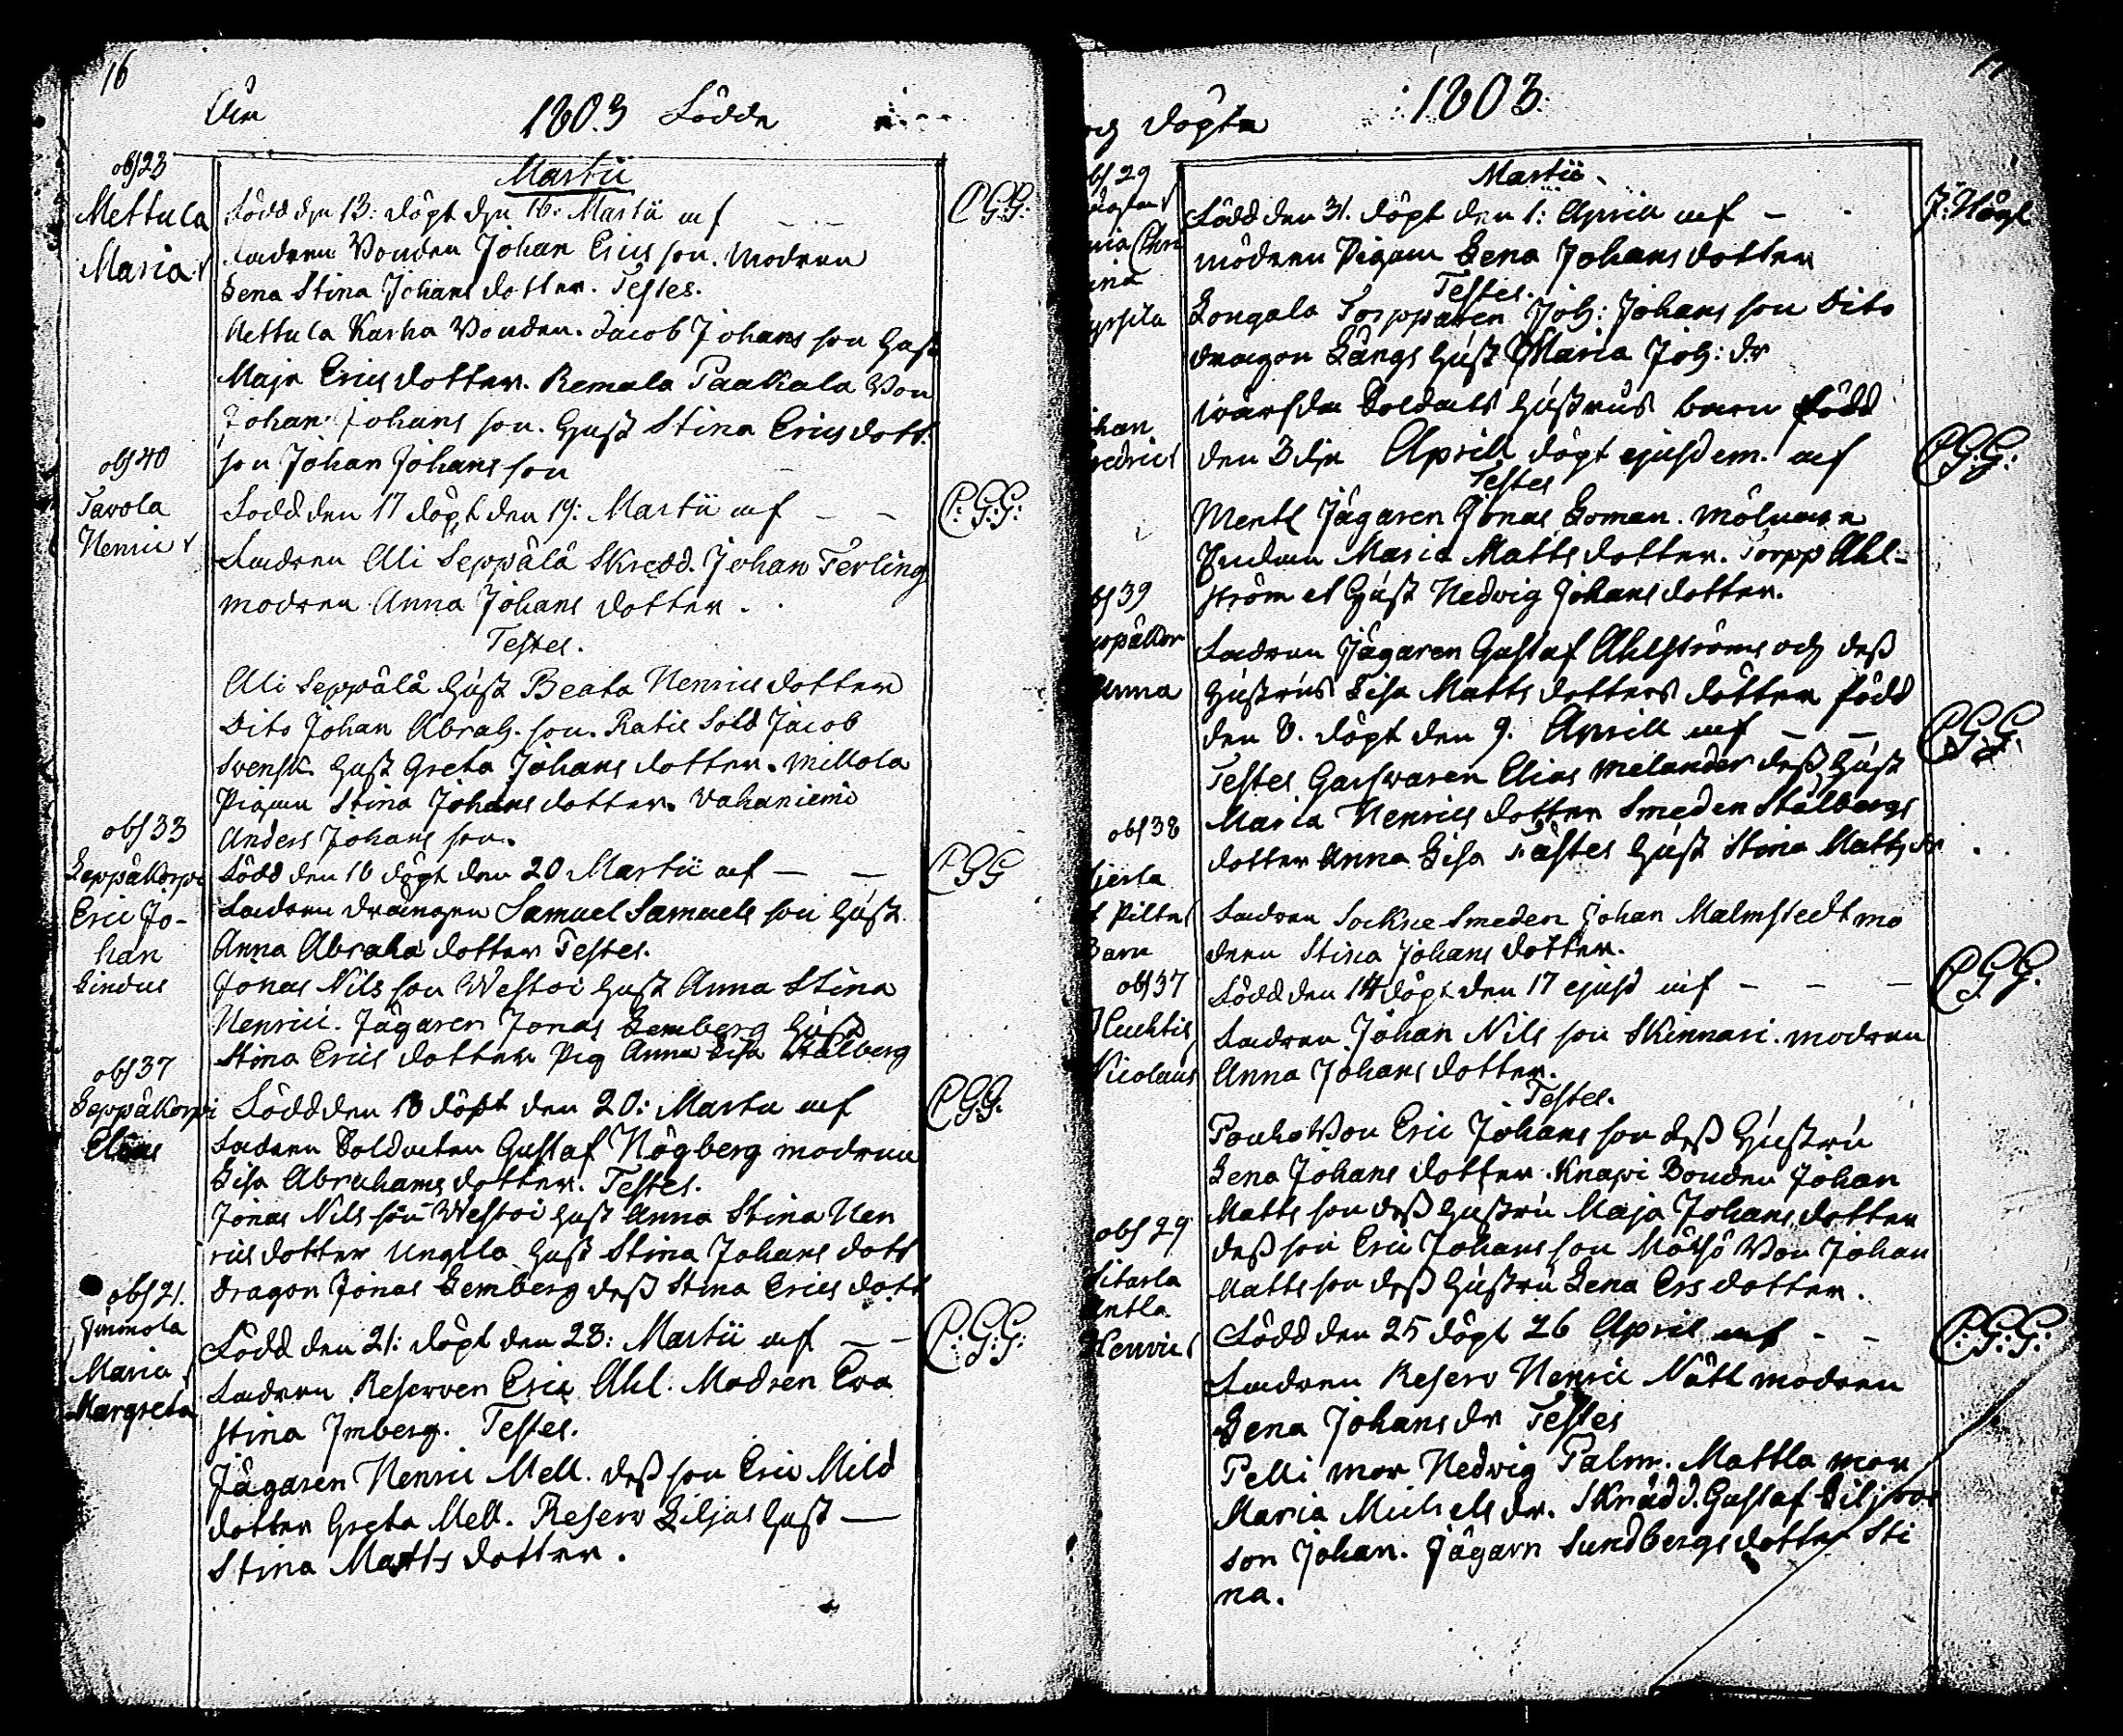 16
Åhr 1803 Födde
obs 23
Mettula
Maria
Martii
Född d. 13: döpt d. 16: Martii af – – C.G.G.
Fadren Bonden Johan Ericsson. Modren
Lena Stina Johansdotter. Testes.
Mettula Karha Bonden. Jacob Johansson Hust
Maja Ericsdotter. Remala Paakala Bon
Johan Johansson. Hust Stina Ericsdott.
son Johan Johansson
obs 40
Tavola
Henric
Född den 17 döpt den 19: Martii af – – C.G.G.
Fadren Ali Seppälä Skredd. Johan Ferling
modren Anna Johansdotter.
Testes.
Ali Seppälä Hust Beata Henricsdotter
Dito Johan Abrah.son. Ratie Sold Jacob
Svensk. Hust Greta Johansdotter. Millola
Pigan Stina Johansdotter. Vahaniemi
Anders Johansson.
obs 33
Leppäkorpi
Eric Jo-
han
Lindus
Född den 18 döpt den 20 Martii af – – CGG
Fadren drängen Samuel Samuelsson Hust.
Anna Abrahadotter Testes.
Jonas Nilsson Westoi Hust Anna Stina
Henrici. Jägaren Jonas Lemberg Hust
Stina Ericsdotter Pig Anna Lisa Stålberg
obs 37
Leppäkorpi
Elias
Född den 18 döpt den 20: Martii af C.G.G.
Fadren Soldaten Gustaf Högberg modren
Lisa Abrahamsdotter. Testes.
Jonas Nilsson Westoi Hust Anna Stina Hen
ricsdotter Ungila Hust Stina Johansdott
dragon Jonas Lemberg dess Stina Ericsdott
obs 21.
Jummola
Maria
Margreta
Född den 21: döpt den 23: Martii af – – C.G.G:
Fadren Reserven Eric Ahl. Modren Eva
Stina Imberg. Testes.
Jägaren Henric Mell. dess son Eric Mild
dotter Greta Mell. Reserv Liljas Hust –
Stina Mattsdotter.
och döpte 1803.
obs 29
Martii.
Född den 31. döpt den 1: Aprill af – - J: Högl
modren Pigan Lena Johansdotter
Testes.
Longala Torpparen Joh: Johansson Dito
dragon Långs Hust Maria Joh: dr
Soldats Hustrus barn född
den 3dje Aprill döpt ejusdem. af C.G.G:
Testes
Mentl Jägaren Jonas Loman. Mölnare
Maria Mattsdotter. Torpp Ahl-
ström et Hust Hedvig Johansdotter.
obs 39
Anna
Fadren Jägaren Gustaf Ahlströms och dess
Hustrus Lisa Mattsdotters dotter född
den 8. döpt den 9. Aprill af – – C.G.G.
Testes Garfvaren Elias Melander dess Hust
Maria Henricsdotter Smeden Stålbergs
dotter Anna Lisa Hust Stina Matts dr
obs 38
Pilta
Barn
Fadren Sockne Smeden Johan Malmstedt mo
dren Stina Johansdotter.
obs 37
Huhtis
Nicolaus
Född den 14 döpt den 17 ejusd af – – – C.G.G.
Fadren Johan Nilsson Skinnari. modren
Anna Johansdotter.
Testes.
Pouha Bon Eric Johansson dess Hustru
Lena Johansdotter. Knapi Bonden Johan
Mattsson dess Hustru Maja Johansdotter
dess son Eric Johansson Mössö Bon Johan
Mattsson dess Hustru Lena Ersdotter.
obs 29
Antla
Henric
Född den 25 döpt 26 April af – – C.G.G:
Fadren Reserv Henric Nätt modren
Lena Johansdr Testes
Pelli mor Hedvig Palm. Mattla mor
Maria Michelsdr. Skrädd. Gustaf Liljroos
son Johan. Jägarn Sundbergs dotter Sti
na.